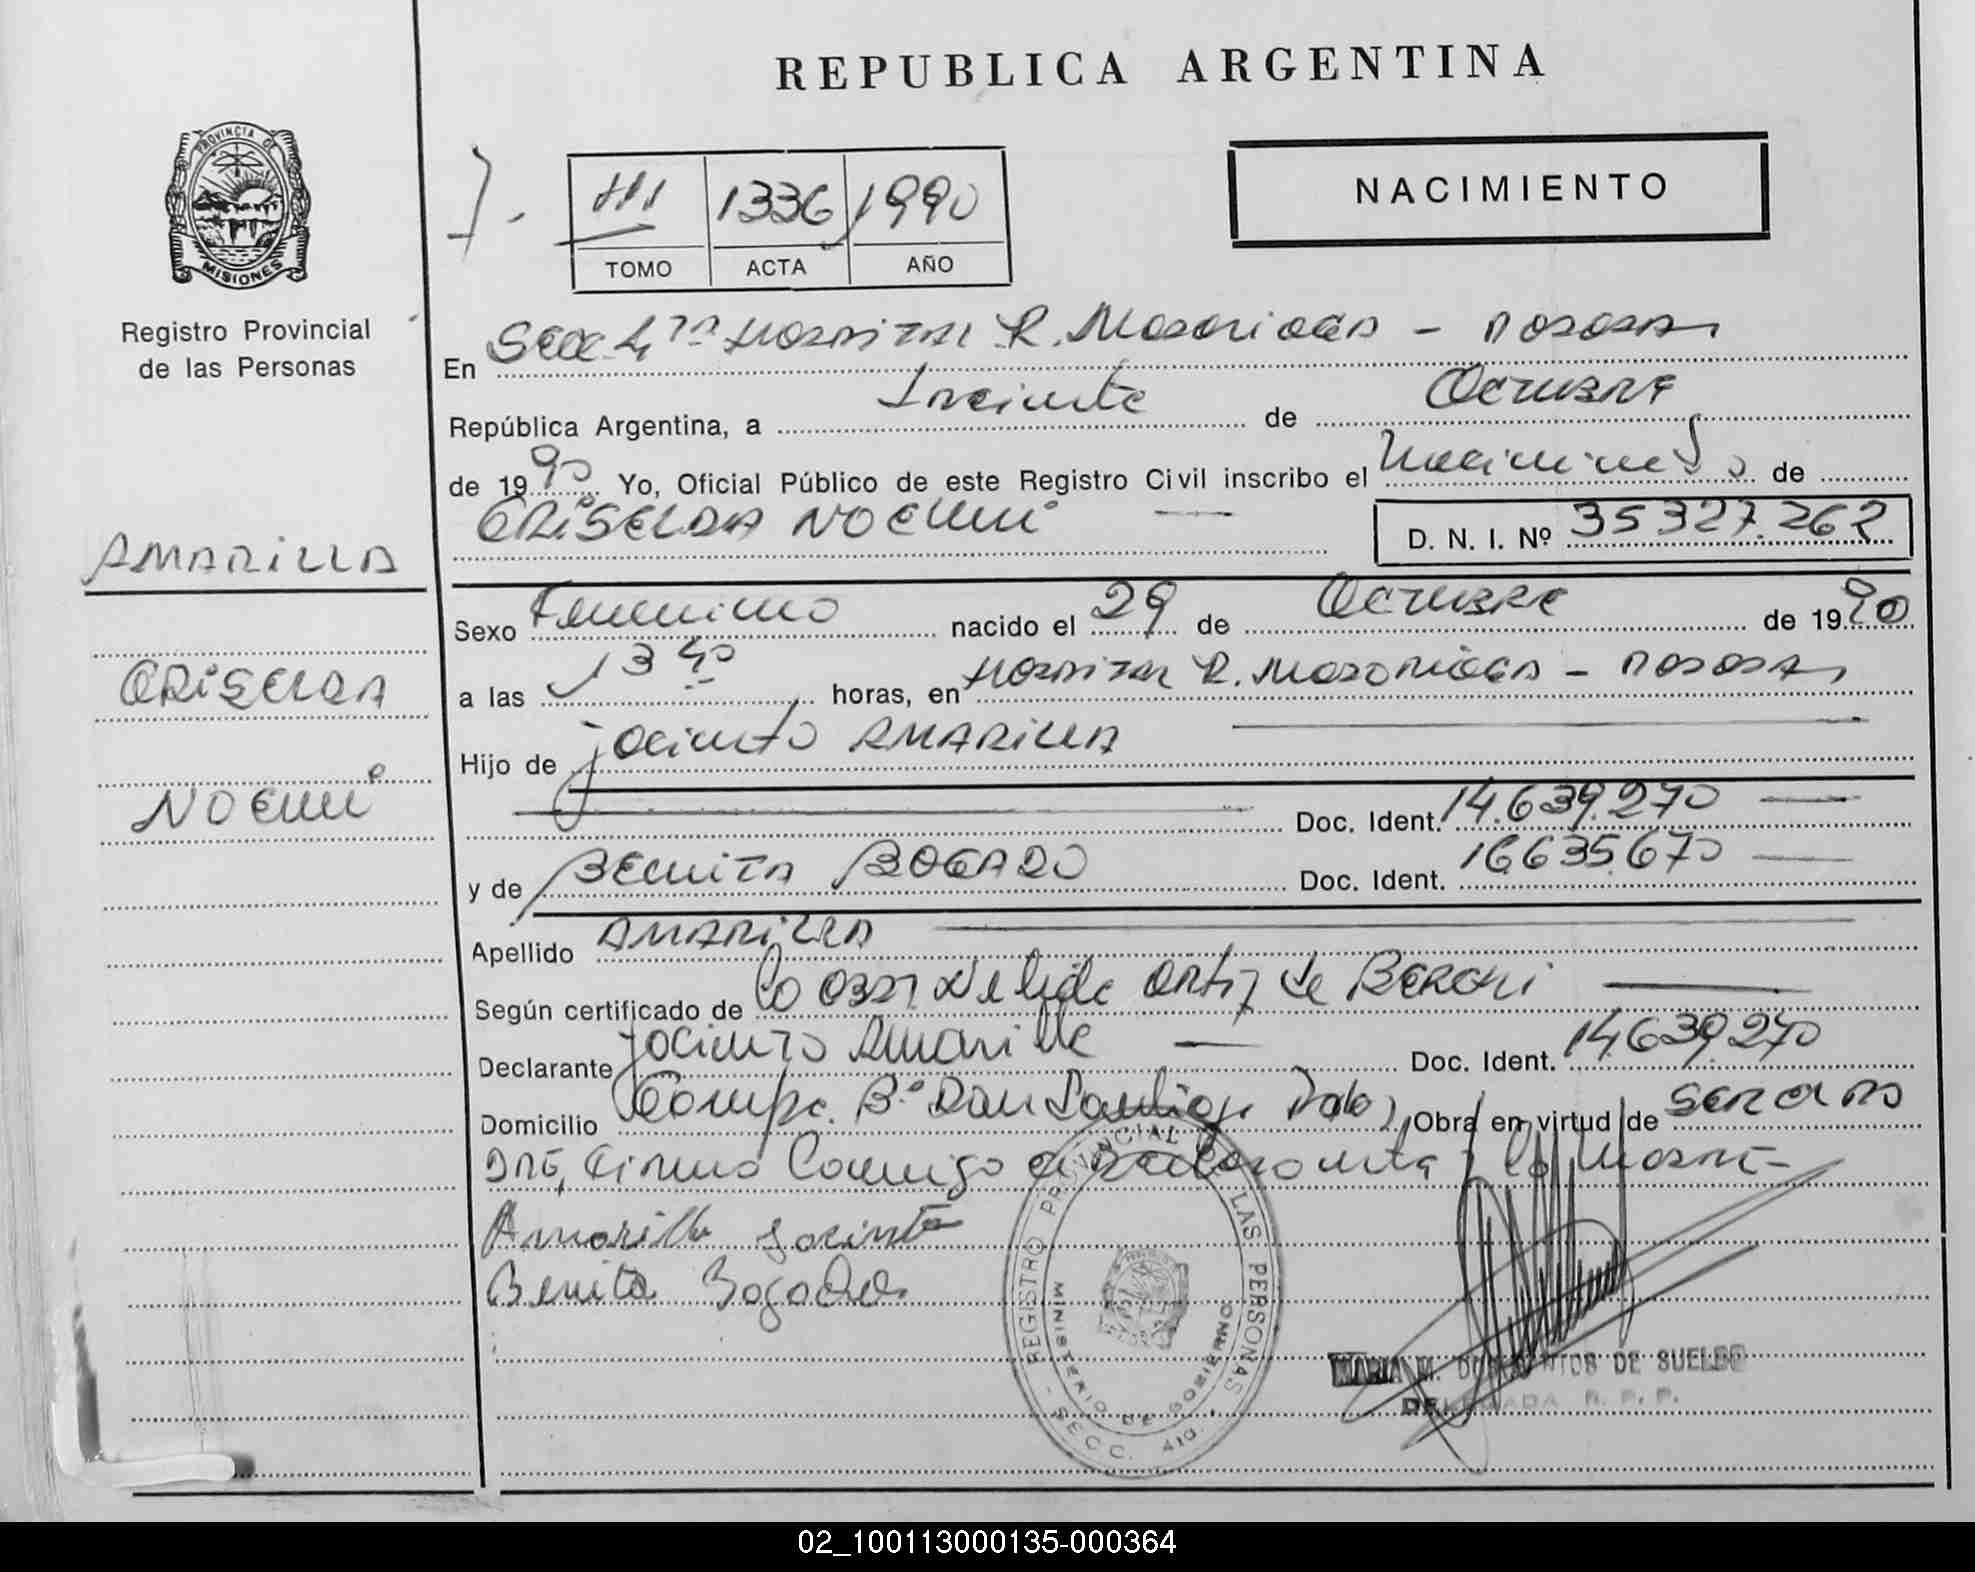 REPUBLICA ARGENTINA
PROVINCIA DE MISIONES
Registro Provincial
de las Personas
III 1336 1990
TOMO ACTA AÑO
NACIMIENTO
En Secc 4ta Hospital R. Madariaga - Posadas
República Argentina, a treinta de Octubre
de 1990 Yo, Oficial Público de este Registro Civil inscribo el nacimiento de
GRISELDA NOEMI D. N. I. Nº 35327.262
AMARILLA
GRISELDA
NOEMI
Sexo Femenino nacido el 29 de Octubre de 1990
a las 13 40 horas, en Hospital R. Madariaga - Posadas
Hijo de Jacinto AMARILLA
Doc. Ident. 14.639.270
y de BENITA BOGADO Doc. Ident. 16635.670
Apellido AMARILLA
Según certificado de la Obst Nelida Ortiz de
Declarante Jacinto Amarilla Doc. Ident. 14.639.270
Domicilio Obra en virtud de ser el pa
dre, firma conmigo la madre
Amarilla Jacinto
Benita Bogado
REGISTRO PROVINCIAL LAS PERSONAS
MINISTERIO DE GOBIERNO
SECC. 4ta.
MARIA M. DE SUELDO
DELEGADA R. P. P.
02_100113000135-000364